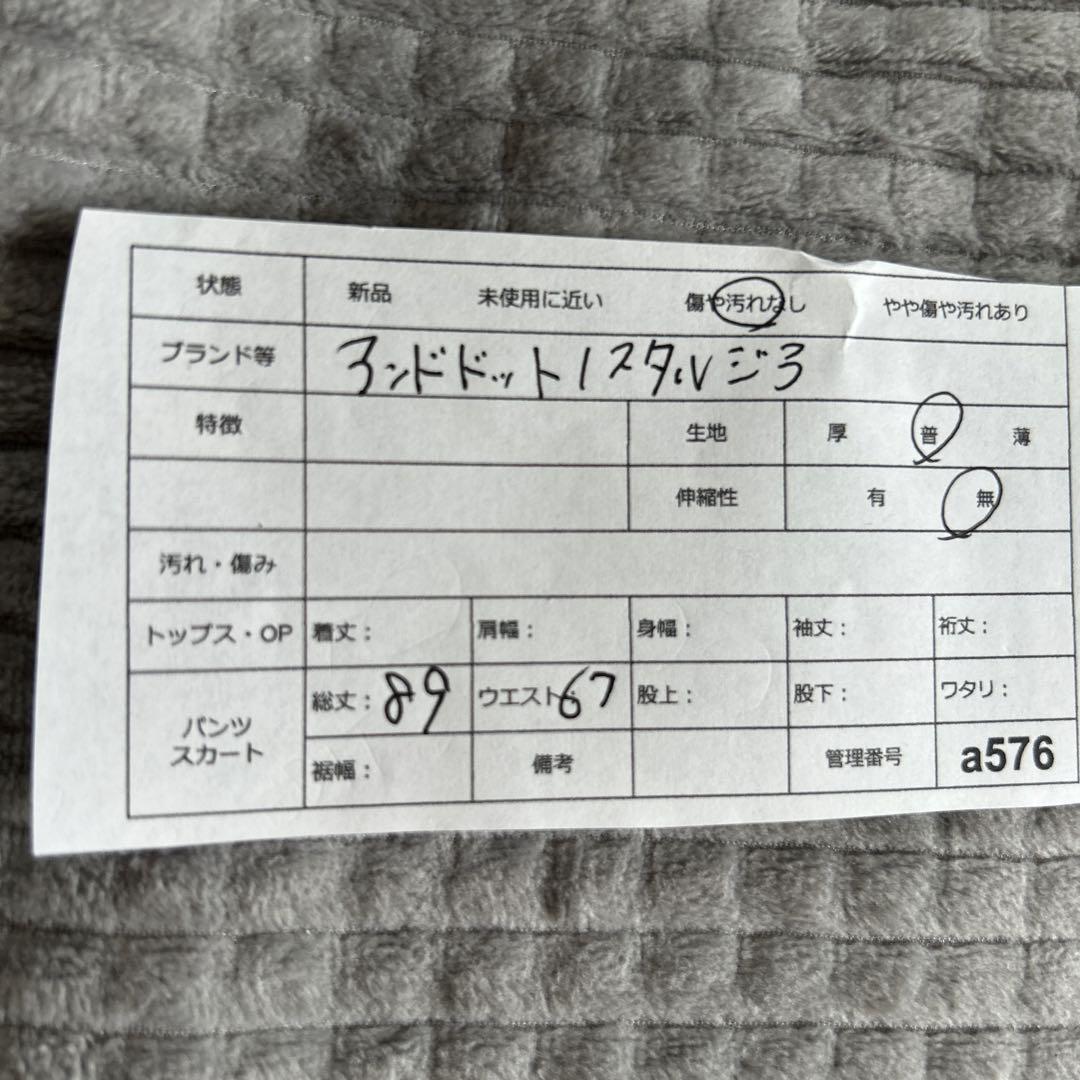 状態 新品 未使用に近い 傷や汚れなし やや傷や汚れあり
ブランド等 アンドドットノスタルジア
特徴 生地 厚 普 薄
伸縮性 有 無
汚れ・傷み
トップス・OP 着丈： 肩幅： 身幅： 袖丈： 裄丈：
パンツ スカート 総丈：89 ウエスト：67 股上： 股下： ワタリ：
裾幅： 備考 管理番号 a576